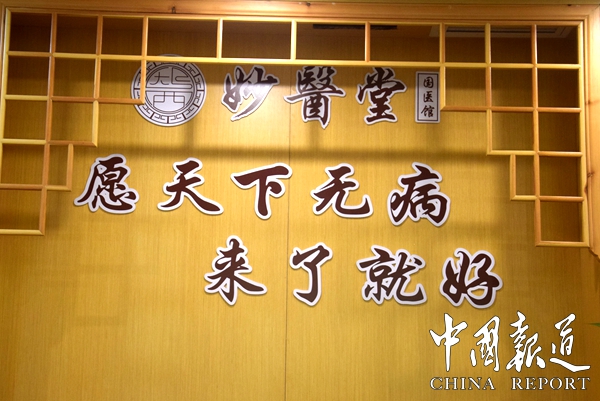 妙醫堂 国医馆
愿天下无病
来了就好
中国報道
CHINA REPORT